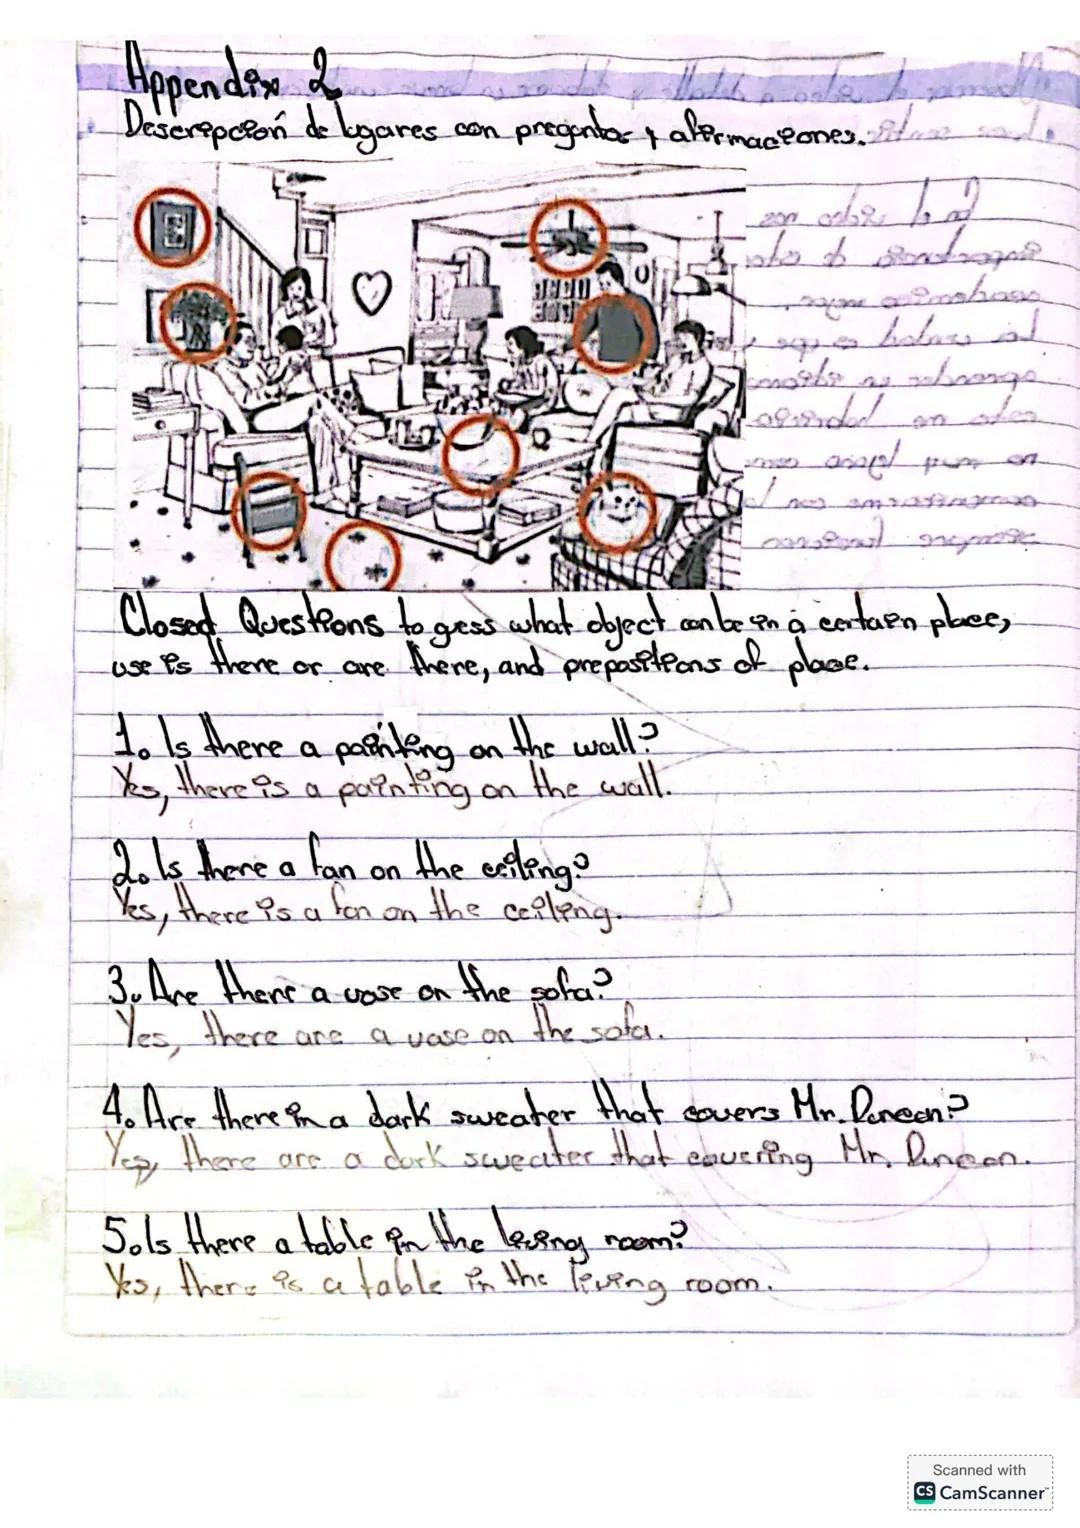 Appendix 2
Descripción de lugares con preguntas y afirmaciones.
Closed Questions to gess what object can be in a certain place,
use is there or are there, and prepositions of place.
1. Is there a painting on the wall?
Yes, there is a painting on the wall.
2. Is there a fan on the ceiling?
Yes, there is a fan on the ceiling.
3. Are there a vase on the sofa?
Yes, there are a vase on the sofa.
4. Are there in a dark sweater that covers Mr. Duncan?
Yes, there are a dark sweater that covering Mr. Duncan.
5. Is there a table in the living room?
Yes, there is a table in the living room.
Scanned with
CS CamScanner